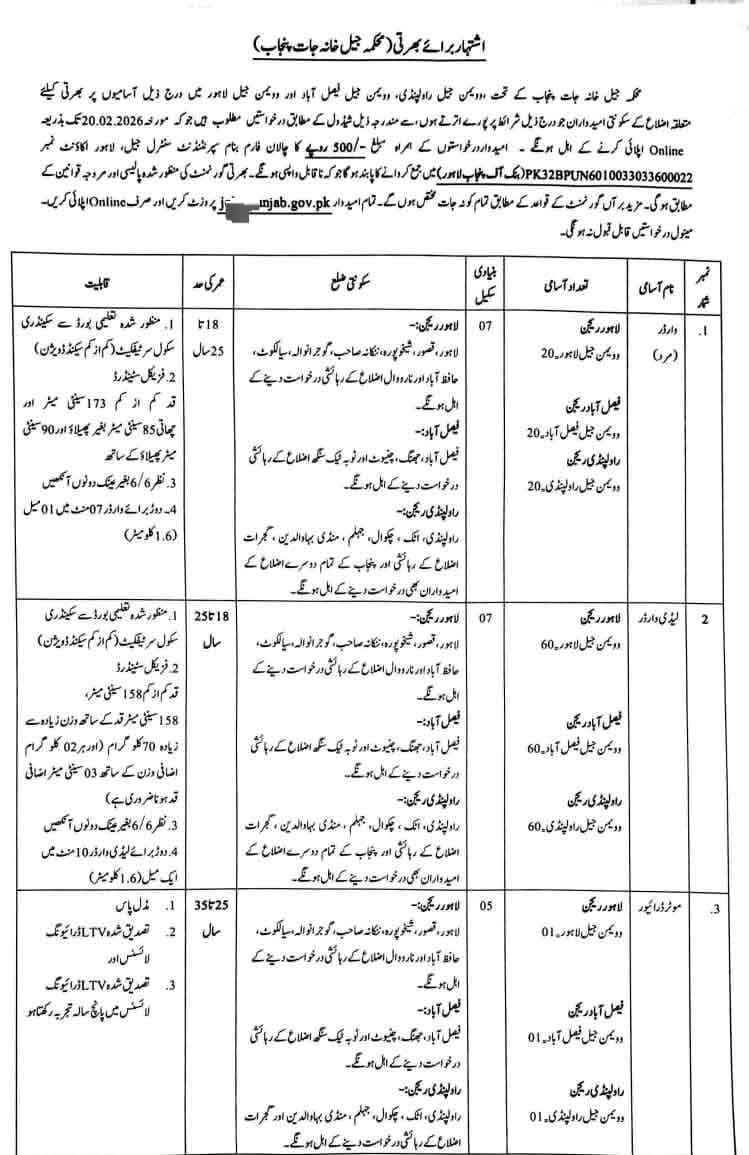 اشتہار برائے بھرتی (محکمہ جیل خانہ جات پنجاب)
محکمہ جیل خانہ جات پنجاب کے تحت، وویمن جیل راولپنڈی، وویمن جیل فیصل آباد اور وویمن جیل لاہور میں درج ذیل آسامیوں پر بھرتی کیلئے
متعلقہ اضلاع کے سکونتی امیدواران جو درج ذیل شرائط پر پورے اترتے ہوں، سے مندرجہ ذیل شیڈول کے مطابق درخواستیں مطلوب ہیں جو کہ مورخہ 20.02.2026 تک بذریعہ
Online اپلائی کرنے کے اہل ہونگے۔ امیدوار درخواستوں کے ہمراہ مبلغ -/500 روپے کا چالان فارم بنام سپرنٹنڈنٹ سنٹرل جیل، لاہور اکاؤنٹ نمبر
PK32BPUN6010033033600022 (بنک آف پنجاب لاہور) میں جمع کروانے کا پابند ہوگا جو کہ ناقابل واپسی ہونگے۔ بھرتی گورنمنٹ کی منظور شدہ پالیسی اور مروجہ قوانین کے
مطابق ہوگی۔ مزید برآں گورنمنٹ کے قواعد کے مطابق تمام کوٹہ جات مختص ہوں گے۔ تمام امیدوار njab.gov.pk پر وزٹ کریں اور صرف Online اپلائی کریں۔
مینول درخواستیں قابل قبول نہ ہوگی۔
نمبر شمار
نام آسامی
تعداد آسامی
بنیادی سکیل
سکونتی ضلع
عمر کی حد
قابلیت
1.
وارڈر
(مرد)
لاہور ریجن
وویمن جیل لاہور۔20
فیصل آباد ریجن
وویمن جیل فیصل آباد۔20
راولپنڈی ریجن
وویمن جیل راولپنڈی۔20
07
لاہور ریجن:-
لاہور، قصور، شیخوپورہ، ننکانہ صاحب، گوجرانوالہ، سیالکوٹ،
حافظ آباد اور نارووال اضلاع کے رہائشی درخواست دینے کے
اہل ہونگے۔
فیصل آباد:-
فیصل آباد، جھنگ، چنیوٹ اور ٹوبہ ٹیک سنگھ اضلاع کے رہائشی
درخواست دینے کے اہل ہونگے۔
راولپنڈی ریجن:-
راولپنڈی، اٹک، چکوال، جہلم، منڈی بہاوالدین، گجرات
اضلاع کے رہائشی اور پنجاب کے تمام دوسرے اضلاع کے
امیدواران بھی درخواست دینے کے اہل ہونگے۔
18 تا
25 سال
1. منظور شدہ تعلیمی بورڈ سے سکینڈری
سکول سرٹیفکیٹ (کم از کم سیکنڈ ڈویژن)
2. فزیکل سٹینڈرڈ
قد کم از کم 173 سینٹی میٹر اور
چھاتی 85 سینٹی میٹر بغیر پھیلاؤ اور 90 سینٹی
میٹر پھیلاؤ کے ساتھ
3. نظر 6/6 بغیر عینک دونوں آنکھیں
4۔ دوڑ برائے وارڈر 07 منٹ میں 01 میل
(1.6 کلومیٹر)
2
لیڈی وارڈر
لاہور ریجن
وویمن جیل لاہور۔60
فیصل آباد ریجن
وویمن جیل فیصل آباد۔60
راولپنڈی ریجن
وویمن جیل راولپنڈی۔60
07
لاہور ریجن:-
لاہور، قصور، شیخوپورہ، ننکانہ صاحب، گوجرانوالہ، سیالکوٹ،
حافظ آباد اور نارووال اضلاع کے رہائشی درخواست دینے کے
اہل ہونگے۔
فیصل آباد:-
فیصل آباد، جھنگ، چنیوٹ اور ٹوبہ ٹیک سنگھ اضلاع کے رہائشی
درخواست دینے کے اہل ہونگے۔
راولپنڈی ریجن:-
راولپنڈی، اٹک، چکوال، جہلم، منڈی بہاوالدین، گجرات
اضلاع کے رہائشی اور پنجاب کے تمام دوسرے اضلاع کے
امیدواران بھی درخواست دینے کے اہل ہونگے۔
18 تا 25
سال
1. منظور شدہ تعلیمی بورڈ سے سکینڈری
سکول سرٹیفکیٹ (کم از کم سیکنڈ ڈویژن)
2. فزیکل سٹینڈرڈ
قد کم از کم 158 سینٹی میٹر،
158 سینٹی میٹر قد کے ساتھ وزن زیادہ سے
زیادہ 70 کلو گرام (اور ہر 02 کلو گرام
اضافی وزن کے ساتھ 03 سینٹی میٹر اضافی
قد ہونا ضروری ہے)
3. نظر 6/6 بغیر عینک دونوں آنکھیں
4. دوڑ برائے لیڈی وارڈر 10 منٹ میں
ایک میل (1.6 کلومیٹر)
3.
موٹر ڈرائیور
لاہور ریجن
وویمن جیل لاہور۔01
فیصل آباد ریجن
وویمن جیل فیصل آباد۔01
راولپنڈی ریجن
وویمن جیل راولپنڈی۔01
05
لاہور ریجن:-
لاہور، قصور، شیخوپورہ، ننکانہ صاحب، گوجرانوالہ، سیالکوٹ،
حافظ آباد اور نارووال اضلاع کے رہائشی درخواست دینے کے
اہل ہونگے۔
فیصل آباد:-
فیصل آباد، جھنگ، چنیوٹ اور ٹوبہ ٹیک سنگھ اضلاع کے رہائشی
درخواست دینے کے اہل ہونگے۔
راولپنڈی ریجن:-
راولپنڈی، اٹک، چکوال، جہلم، منڈی بہاوالدین اور گجرات
اضلاع کے رہائشی درخواست دینے کے اہل ہونگے۔
25 تا 35
سال
1. مڈل پاس
2. تصدیق شدہ LTV ڈرائیونگ
لائسنس اور
3. تصدیق شدہ LTV ڈرائیونگ
لائسنس میں پانچ سالہ تجربہ رکھتا ہو